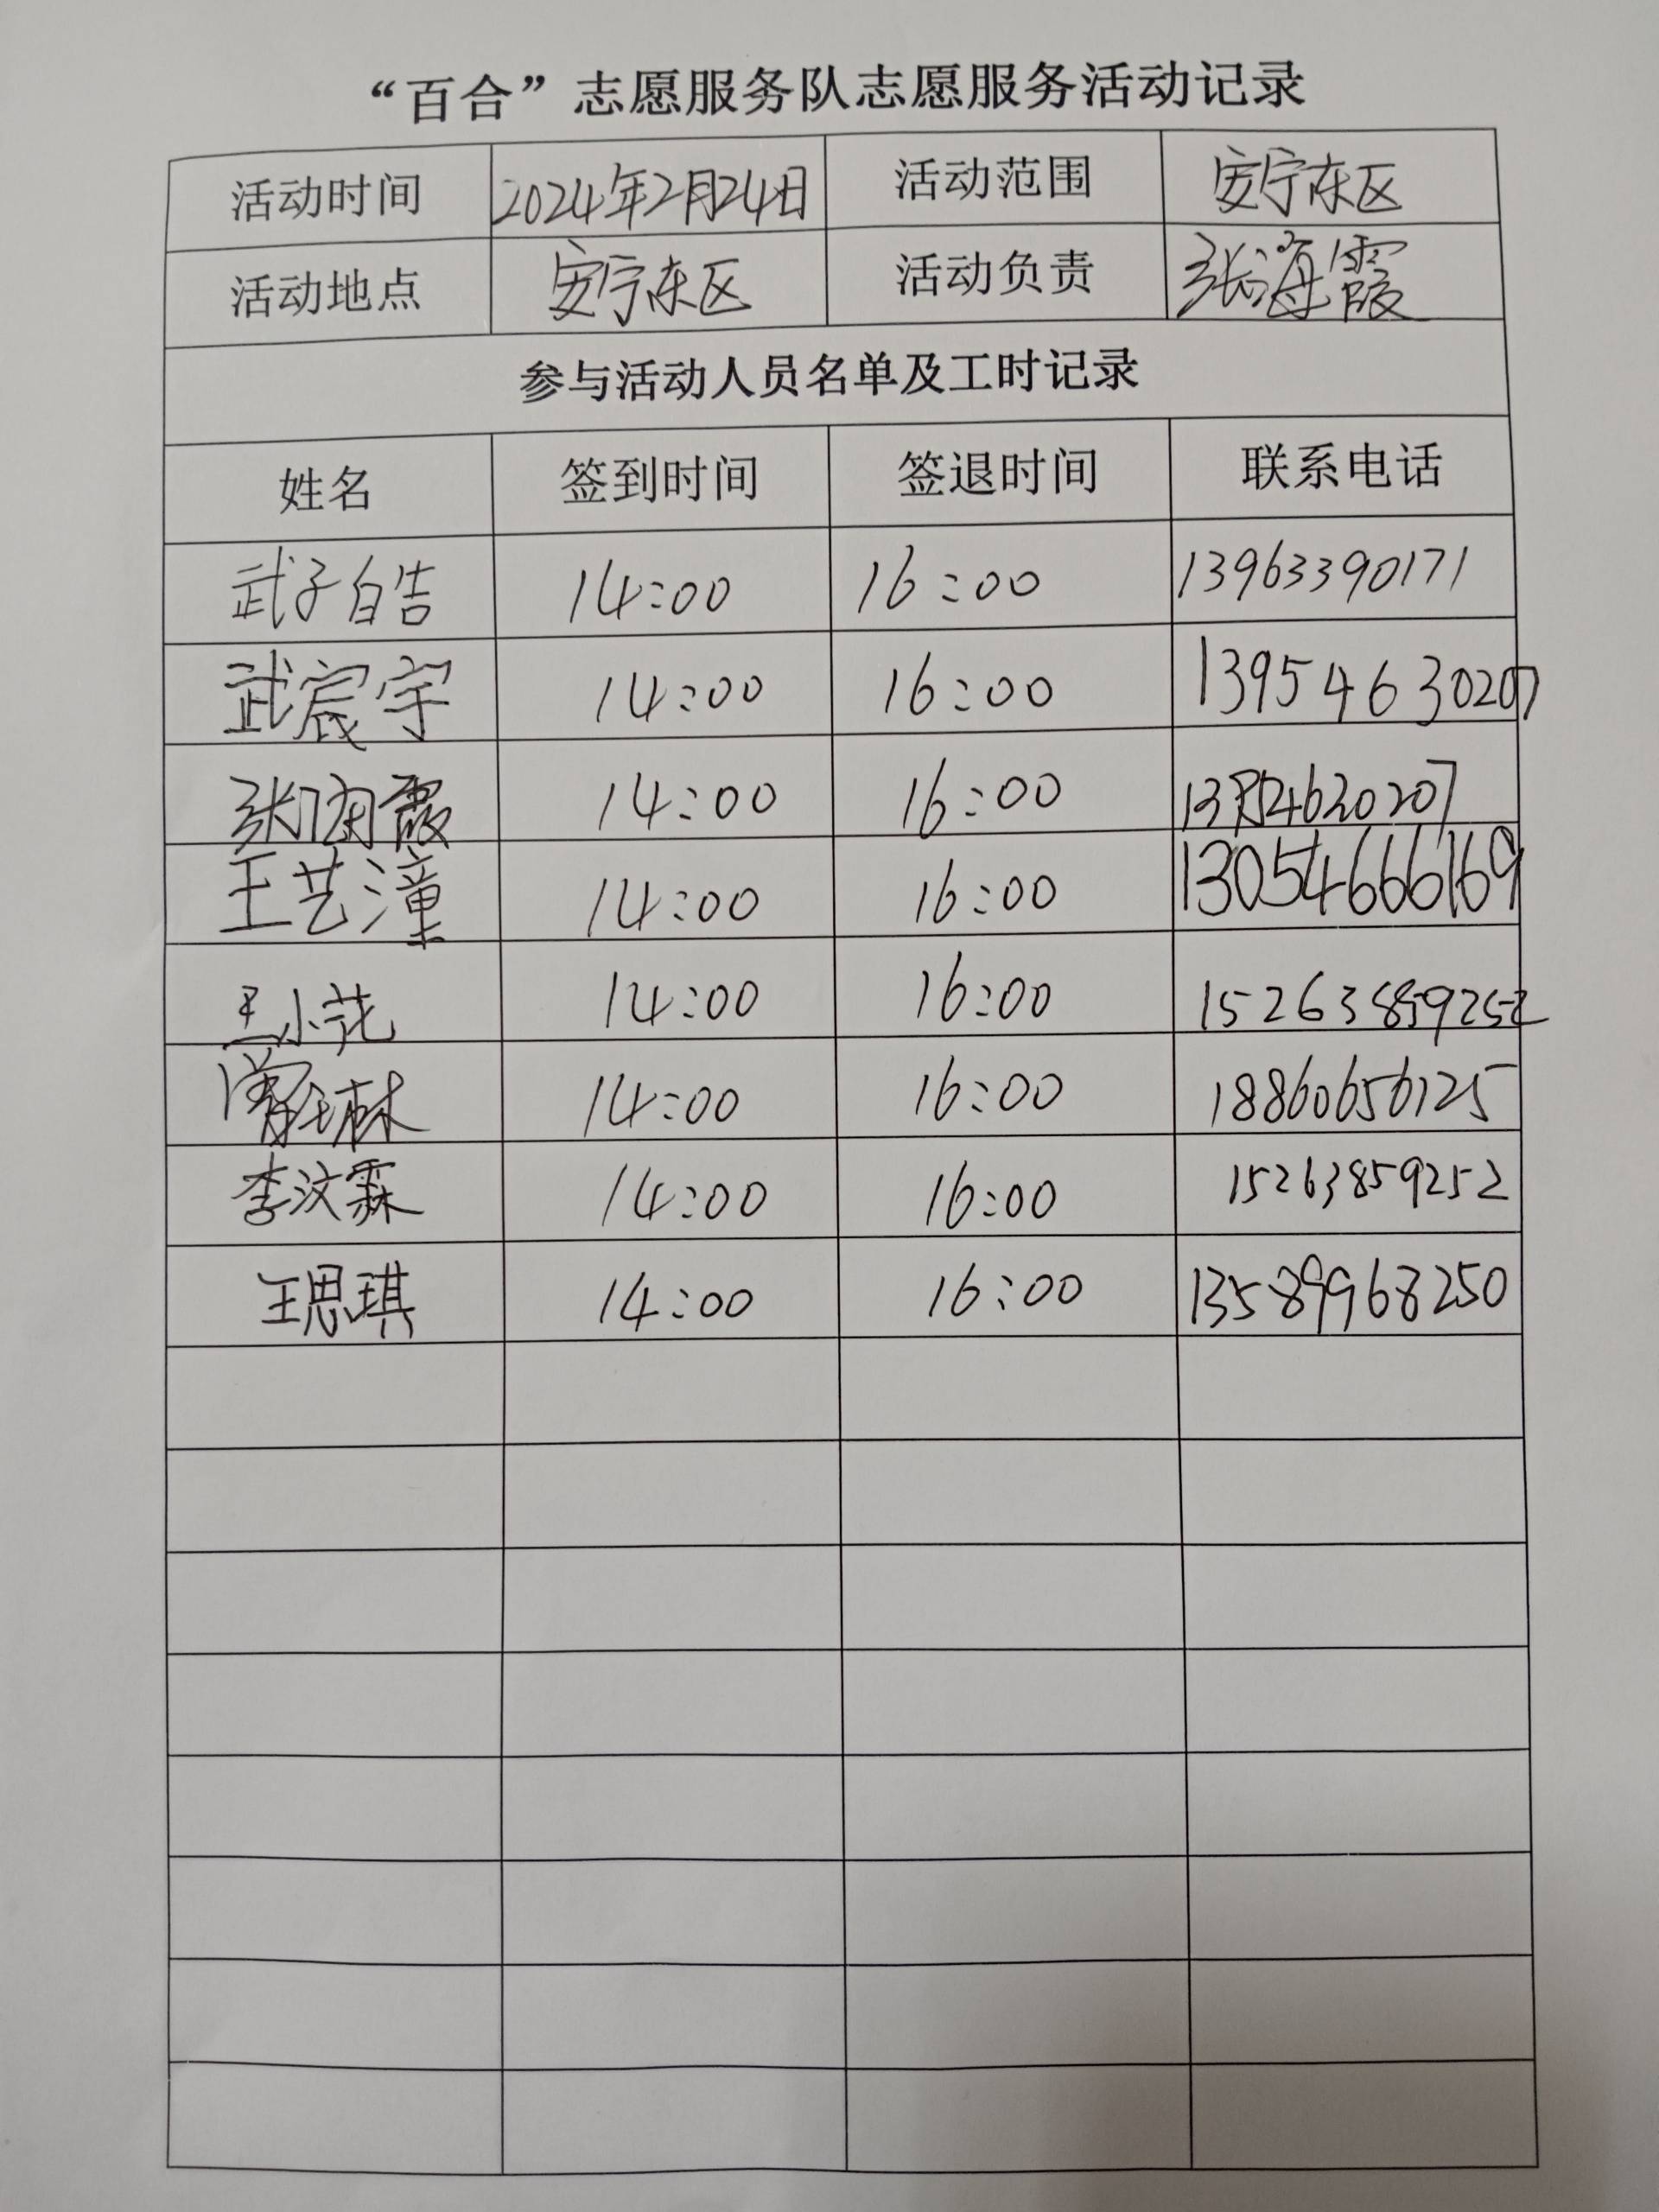 “百合”志愿服务队志愿服务活动记录
活动时间 2024年2月24日 活动范围 安宁东区
活动地点 安宁东区 活动负责 张海霞
参与活动人员名单及工时记录
姓名 签到时间 签退时间 联系电话
武子皓 14:00 16:00 13963390171
武宸宇 14:00 16:00 13954630207
14:00 16:00
王艺潼 14:00 16:00 13054666169
王小花 14:00 16:00
14:00 16:00 18860656125
李汶霖 14:00 16:00 15263859252
王思琪 14:00 16:00 13589968250